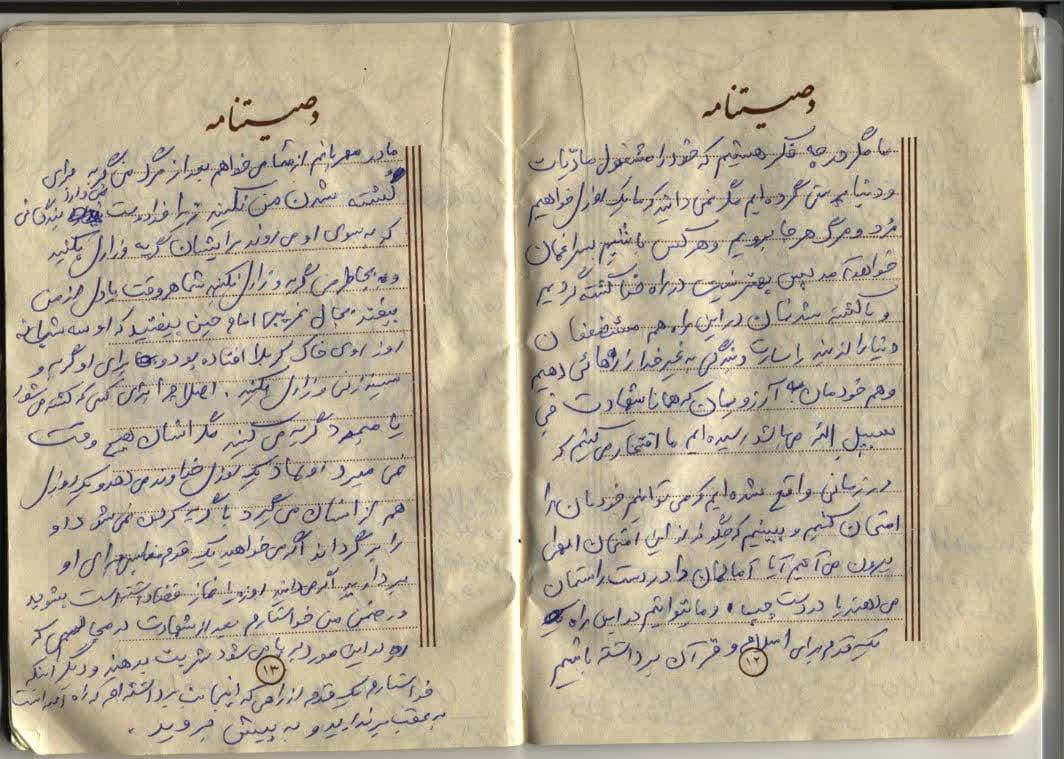 وصیتنامه
ما مگر در چه فکر هستیم که خود را مشغول مادیات
و دنیا پرستی کرده‌ایم مگر نمی دانند که ما یک روزی خواهیم
مُرد و مرگ هر جا برویم و هر کس باشیم به سراغمان
خواهد آمد پس بهتر نیست در راه خدا کشته گردیم
و با کشته شدنمان در این راه هم مستضعفان
دنیا را از بند و اسارت و بندگی به غیر خدا رهائی دهیم
و هم خودمان به آرزویمان که همانا شهادت فی
سبیل الله می باشد رسیده‌ایم ما افتخار می کنیم که
در زمانی واقع شده‌ایم که می توانیم خودمان را
امتحان کنیم و ببینیم که چگونه از این امتحان الهی
بیرون می آئیم آیا آمالمان را در دست راستمان
می دهند یا در دست چپ، و ما بتوانیم در این راه
یک قدم برای اسلام و قرآن برداشته باشیم
۱۲
وصیتنامه
مادر مهربانم از شما می خواهم بعد از مرگ من گریه برای
کشته شدن من نکنید زیرا خداوند دوست نمی دارد بندگانی
که به سوی او می روند برایشان گریه و زاری بکنید
و به خاطر من گریه و زاری نکنید شما هر وقت یاد از من
بیفتید به حال غریبی امام حسین بیفتید که او سه شبانه
روز روی خاک کربلا افتاده بود و برای او گریه و
سینه زنی و زاری بکنید. اصلاً چرا برای کسی که کشته می شود
یا میمیرد گریه می کنید مگر انسان هیچ وقت
نمی میرد او را یک روزی خداوند می دهد و یک روزی
هم از انسان می گیرد با گریه کردن نمی شود او
را برگرداند اگر می خواهید یک قدم برای او
بردارید اگر می دانید روزه یا نماز قضا داشته است بشوید
در ضمن من خواستارم بعد از شهادت در مجالسی که
در این مورد بر پا می شود شربت بدهند و دیگر اینکه
۱۳
خواستارم یک قدم از راهی که اینجانب برداشته‌ام که راه آمدنست
به عقب برندارید و به پیش بروید.